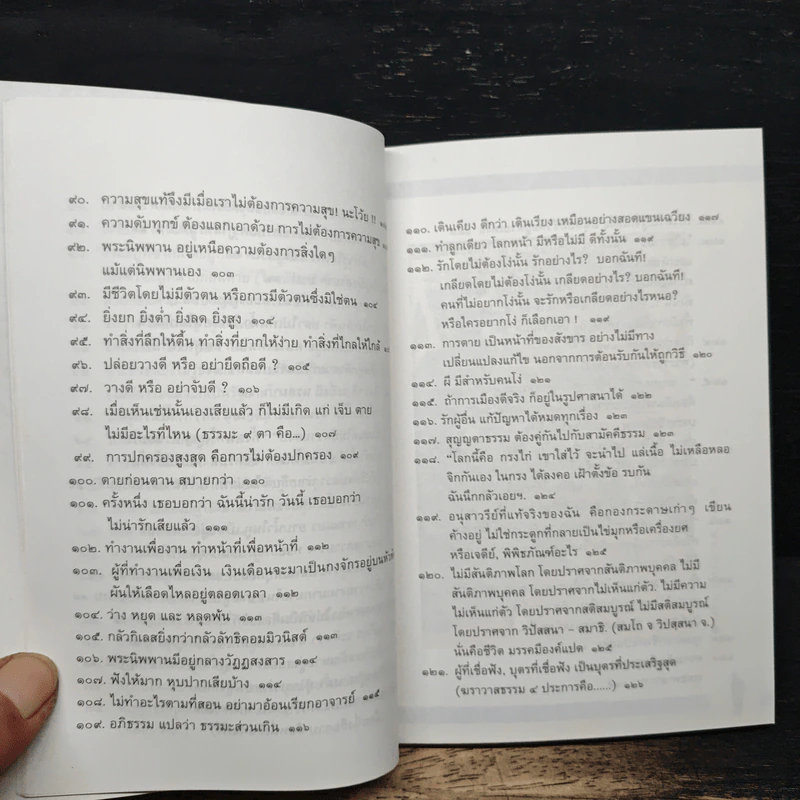 ๙๐. ความสุขแท้จึงมีเมื่อเราไม่ต้องการความสุข! นะโว้ย !!
๙๑. ความดับทุกข์ ต้องแลกเอาด้วย การไม่ต้องการความสุข
๙๒. พระนิพพาน อยู่เหนือความต้องการสิ่งใดๆ
แม้แต่นิพพานเอง ๑๐๓
๙๓. มีชีวิตโดยไม่มีตัวตน หรือการมีตัวตนซึ่งมิใช่ตน ๑๐๔
๙๔. ยิ่งยก ยิ่งต่ำ ยิ่งลด ยิ่งสูง ๑๐๔
๙๕. ทำสิ่งที่ลึกให้ตื้น ทำสิ่งที่ยากให้ง่าย ทำสิ่งที่ไกลให้ใกล้
๙๖. ปล่อยวางดี หรือ อย่ายึดถือดี ? ๑๐๕
๙๗. วางดี หรือ อย่าจับดี ? ๑๐๖
๙๘. เมื่อเห็นเช่นนั้นเองเสียแล้ว ก็ไม่มีเกิด แก่ เจ็บ ตาย
ไม่มีอะไรที่ไหน (ธรรมะ ๙ ตา คือ...) ๑๐๗
๙๙. การปกครองสูงสุด คือการไม่ต้องปกครอง ๑๐๙
๑๐๐. ตายก่อนตาน สบายกว่า ๑๑๐
๑๐๑. ครั้งหนึ่ง เธอบอกว่า ฉันนี้น่ารัก วันนี้ เธอบอกว่า
ไม่น่ารักเสียแล้ว ๑๑๑
๑๐๒. ทำงานเพื่องาน ทำหน้าที่เพื่อหน้าที่ ๑๑๒
๑๐๓. ผู้ที่ทำงานเพื่อเงิน เงินเดือนจะมาเป็นกงจักรอยู่บนหัว
ผันให้เลือดไหลอยู่ตลอดเวลา ๑๑๒
๑๐๔. ว่าง หยุด และ หลุดพ้น ๑๑๓
๑๐๕. กลัวกิเลสยิ่งกว่ากลัวลัทธิคอมมิวนิสต์ ๑๑๓
๑๐๖. พระนิพพานมีอยู่กลางวัฏฏสงสาร ๑๑๔
๑๐๗. ฟังให้มาก หุบปากเสียบ้าง ๑๑๔
๑๐๘. ไม่ทำอะไรตามที่สอน อย่ามาอ้อนเรียกอาจารย์ ๑๑๕
๑๐๙. อภิธรรม แปลว่า ธรรมะส่วนเกิน ๑๑๖
๑๑๐. เดินเคียง ดีกว่า เดินเรียง เหมือนอย่างสอดแขนเฉวียง ๑๑๗
๑๑๑. ทำลูกเดียว โลกหน้า มีหรือไม่มี ดีทั้งนั้น ๑๑๙
๑๑๒. รักโดยไม่ต้องโง่นั้น รักอย่างไร? บอกฉันที!
เกลียดโดยไม่ต้องโง่นั้น เกลียดอย่างไร? บอกฉันที!
คนที่ไม่อยากโง่นั้น จะรักหรือเกลียดอย่างไรหนอ?
หรือใครอยากโง่ ก็เลือกเอา ! ๑๑๙
๑๑๓. การตาย เป็นหน้าที่ของสังขาร อย่างไม่มีทาง
เปลี่ยนแปลงแก้ไข นอกจากการต้อนรับกันให้ถูกวิธี ๑๒๐
๑๑๔. ผี มีสำหรับคนโง่ ๑๒๑
๑๑๕. ถ้าการเมืองดีจริง ก็อยู่ในรูปศาสนาได้ ๑๒๒
๑๑๖. รักผู้อื่น แก้ปัญหาได้หมดทุกเรื่อง ๑๒๓
๑๑๗. สุญญตาธรรม ต้องคู่กันไปกับสามัคคีธรรม ๑๒๓
๑๑๘. "โลกนี้คือ กรงไก่ เขาใส่ไว้ จะนำไป แล่เนื้อ ไม่เหลือหลอ
จิกกันเอง ในกรง ได้ลงคอ เฝ้าตั้งข้อ รบกัน
ฉันนึกกลัวเอยฯ. ๑๒๔
๑๑๙. อนุสาวรีย์ที่แท้จริงของฉัน คือกองกระดาษเก่าๆ เขียน
ค้างอยู่ ไม่ใช่กระดูกที่กลายเป็นไข่มุกหรือเครื่องยศ
หรือเจดีย์, พิพิธภัณฑ์อะไร ๑๒๕
๑๒๐. ไม่มีสันติภาพโลก โดยปราศจากสันติภาพบุคคล ไม่มี
สันติภาพบุคคล โดยปราศจากไม่เห็นแก่ตัว. ไม่มีความ
ไม่เห็นแก่ตัว โดยปราศจากสติสมบูรณ์ ไม่มีสติสมบูรณ์
โดยปราศจาก วิปัสสนา – สมาธิ. (สมโถ จ วิปสฺสนา จ.)
นั่นคือชีวิต มรรคมีองค์แปด ๑๒๕
๑๒๑. ผู้ที่เชื่อฟัง, บุตรที่เชื่อฟัง เป็นบุตรที่ประเสริฐสุด
(ฆราวาสธรรม ๔ ประการคือ......) ๑๒๖